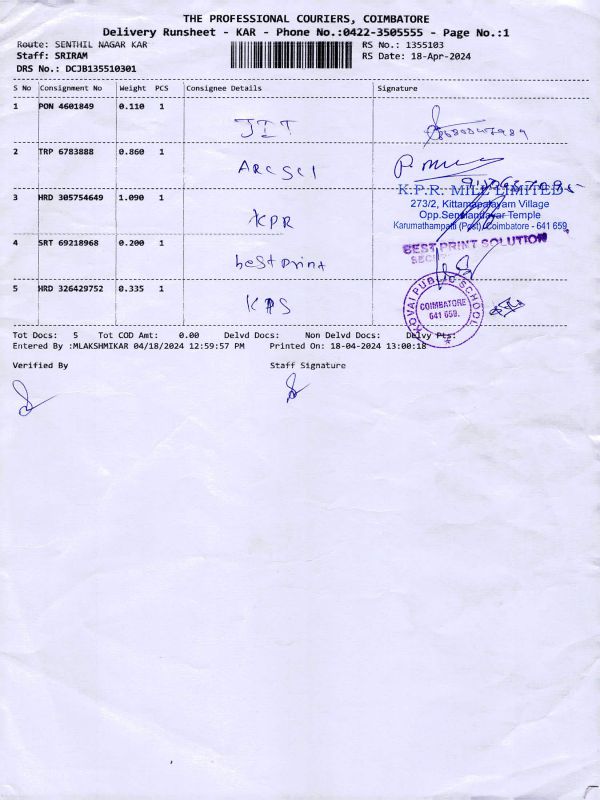 THE PROFESSIONAL COURIERS, COIMBATORE
Delivery Runsheet - KAR - Phone No.:0422-3505555 - Page No.:1
Route: SENTHIL NAGAR KAR
RS No.: 1355103
Staff: SRIRAM
RS Date: 18-Apr-2024
DRS No.: DCJB135510301
S No Consignment No Weight PCS Consignee Details Signature
1 PON 4601849 0.110 1
JIT
2 TRP 6783888 0.860 1
ARCSCI
3 HRD 305754649 1.090 1
KPR
K.P.R. MILL LIMITED
273/2, Kittampalayam Village
Opp.Senthandavar Temple
Karumathampatti (Post) Coimbatore - 641 659.
4 SRT 69218968 0.200 1
best print
BEST PRINT SOLUTION
5 HRD 326429752 0.335 1
KPS
KOVAI PUBLIC SCHOOL
COIMBATORE
641 659.
Tot Docs: 5 Tot COD Amt: 0.00 Delvd Docs: Non Delvd Docs: Delvy Pts:
Entered By :MLAKSHMIKAR 04/18/2024 12:59:57 PM Printed On: 18-04-2024 13:00:18
Verified By Staff Signature